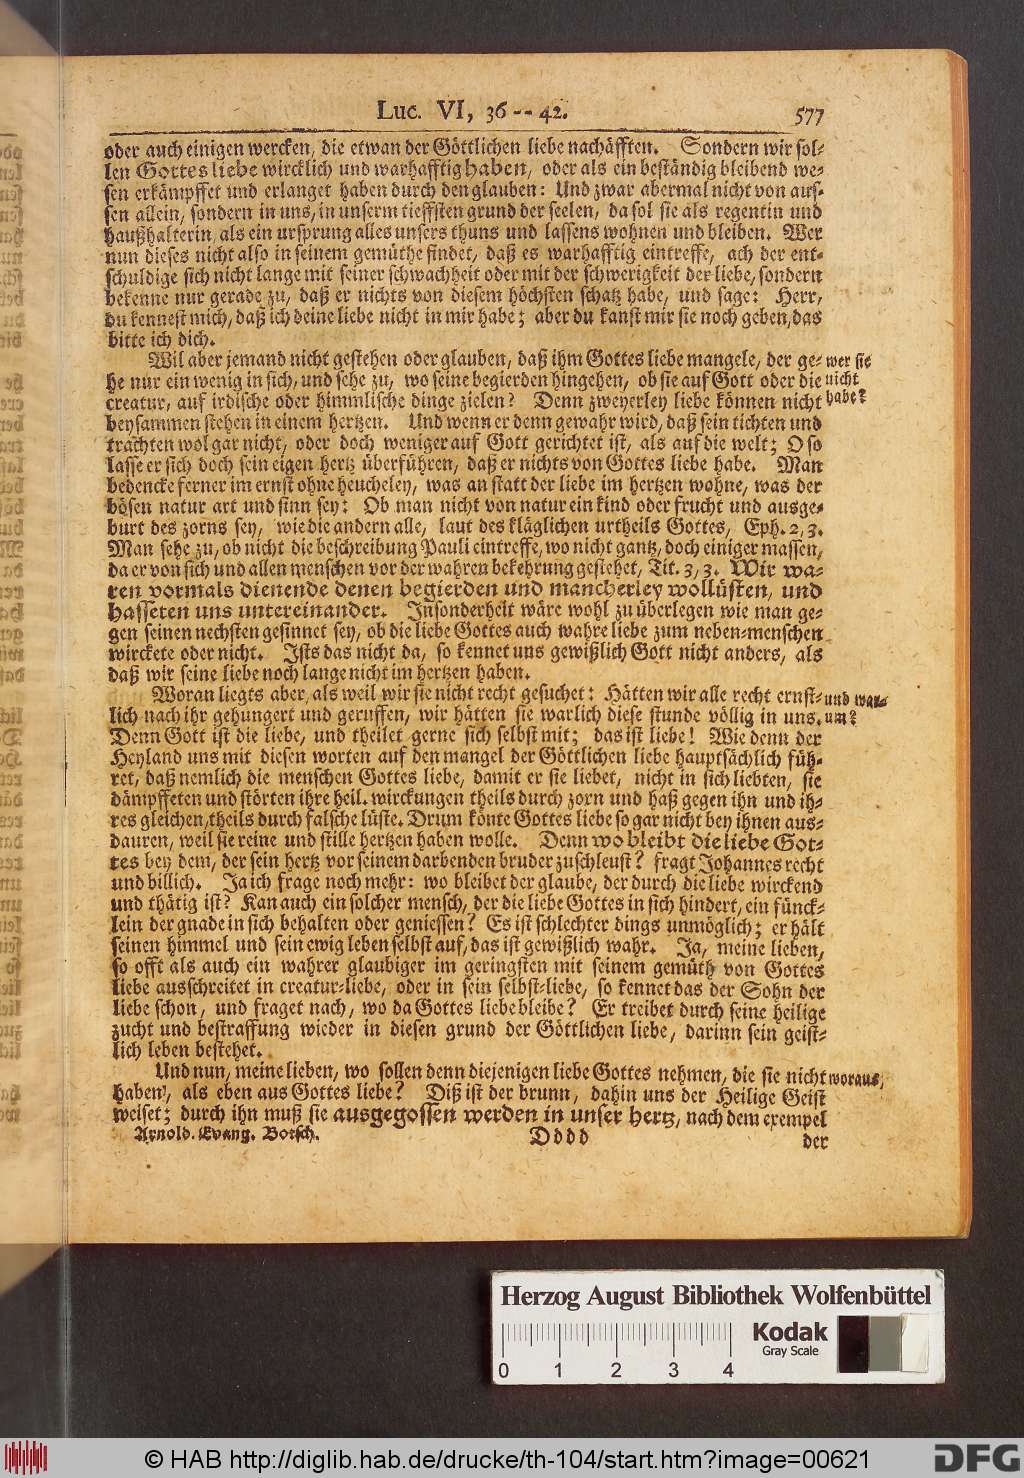 Luc. VI, 36--42. 577
oder auch einigen wercken, die etwan der Göttlichen liebe nachäfften. Sondern wir sol-
len Gottes liebe wircklich und warhafftig haben, oder als ein beständig bleibend we-
sen erkämpffet und erlanget haben durch den glauben: Und zwar abermal nicht von aus-
sen allein, sondern in uns, in unserm tieffsten grund der seelen, da sol sie als regentin und
haußhalterin als ein ursprung alles unsers thuns und lassens wohnen und bleiben. Wer
nun dieses nicht also in seinem gemüthe findet, daß es warhafftig eintreffe, ach der ent-
schuldige sich nicht lange mit seiner schwachheit oder mit der schwerigkeit der liebe, sondern
bekenne nur gerade zu, daß er nichts von diesem höchsten schatz habe, und sage: Herr,
du kennest mich, daß ich deine liebe nicht in mir habe; aber du kanst mir sie noch geben, das
bitte ich dich.
Wil aber jemand nicht gestehen oder glauben, daß ihm Gottes liebe mangele, der ge- wer sie
he nur ein wenig in sich, und sehe zu, wo seine begierden hingehen, ob sie auf Gott oder die nicht
creatur, auf irdische oder himmlische dinge zielen? Denn zweyerley liebe können nicht habe?
beysammen stehen in einem hertzen. Und wenn er denn gewahr wird, daß sein tichten und
trachten wol gar nicht, oder doch weniger auf Gott gerichtet ist, als auf die welt; O so
lasse er sich doch sein eigen hertz überführen, daß er nichts von Gottes liebe habe. Man
bedencke ferner im ernst ohne heucheley, was an statt der liebe im hertzen wohne, was der
bösen natur art und sinn sey: Ob man nicht von natur ein kind oder frucht und ausge-
burt des zorns sey, wie die andern alle, laut des kläglichen urtheils Gottes, Eph. 2, 3.
Man sehe zu, ob nicht die beschreibung Pauli eintreffe, wo nicht gantz, doch einiger massen,
da er von sich und allen menschen vor der wahren bekehrung gestehet, Tit. 3, 3. Wir wa-
ren vormals dienende denen begierden und mancherley wollüsten, und
hasseten uns untereinander. Insonderheit wäre wohl zu überlegen wie man ge-
gen seinen nechsten gesinnet sey, ob die liebe Gottes auch wahre liebe zum neben-menschen
wirckete oder nicht. Ists das nicht da, so kennet uns gewißlich Gott nicht anders, als
daß wir seine liebe noch lange nicht im hertzen haben.
Woran liegts aber, als weil wir sie nicht recht gesuchet: Hätten wir alle recht ernst- und war-
lich nach ihr gehungert und geruffen, wir hätten sie warlich diese stunde völlig in uns. um?
Denn Gott ist die liebe, und theilet gerne sich selbst mit; das ist liebe! Wie denn der
Heyland uns mit diesen worten auf den mangel der Göttlichen liebe hauptsächlich füh-
ret, daß nemlich die menschen Gottes liebe, damit er sie liebet, nicht in sich liebten, sie
dämpffeten und störten ihre heil. wirckungen theils durch zorn und haß gegen ihn und ih-
res gleichen, theils durch falsche lüste. Drum könte Gottes liebe so gar nicht bey ihnen aus-
dauren, weil sie reine und stille hertzen haben wolle. Denn wo bleibt die liebe Got-
tes bey dem, der sein hertz vor seinem darbenden bruder zuschleust? fragt Johannes recht
und billich. Ja ich frage noch mehr: wo bleibet der glaube, der durch die liebe wirckend
und thätig ist? Kan auch ein solcher mensch, der die liebe Gottes in sich hindert, ein fünck-
lein der gnade in sich behalten oder geniessen? Es ist schlechter dings unmöglich; er hält
seinen himmel und sein ewig leben selbst auf, das ist gewißlich wahr. Ja, meine lieben,
so offt als auch ein wahrer glaubiger im geringsten mit seinem gemüth von Gottes
liebe ausschreitet in creatur-liebe, oder in sein selbst-liebe, so kennet das der Sohn der
liebe schon, und fraget nach, wo da Gottes liebe bleibe? Er treibet durch seine heilige
zucht und bestraffung wieder in diesen grund der Göttlichen liebe, darinn sein geist-
lich leben bestehet.
Und nun, meine lieben, wo sollen denn diejenigen liebe Gottes nehmen, die sie nicht woraus,
haben, als eben aus Gottes liebe? Diß ist der brunn, dahin uns der Heilige Geist
weiset; durch ihn muß sie ausgegossen werden in unser hertz, nach dem exempel
Arnold. Evang. Botsch. Dddd der
Herzog August Bibliothek Wolfenbüttel
Kodak
Gray Scale
0 1 2 3 4
© HAB http://diglib.hab.de/drucke/th-104/start.htm?image=00621
DFG